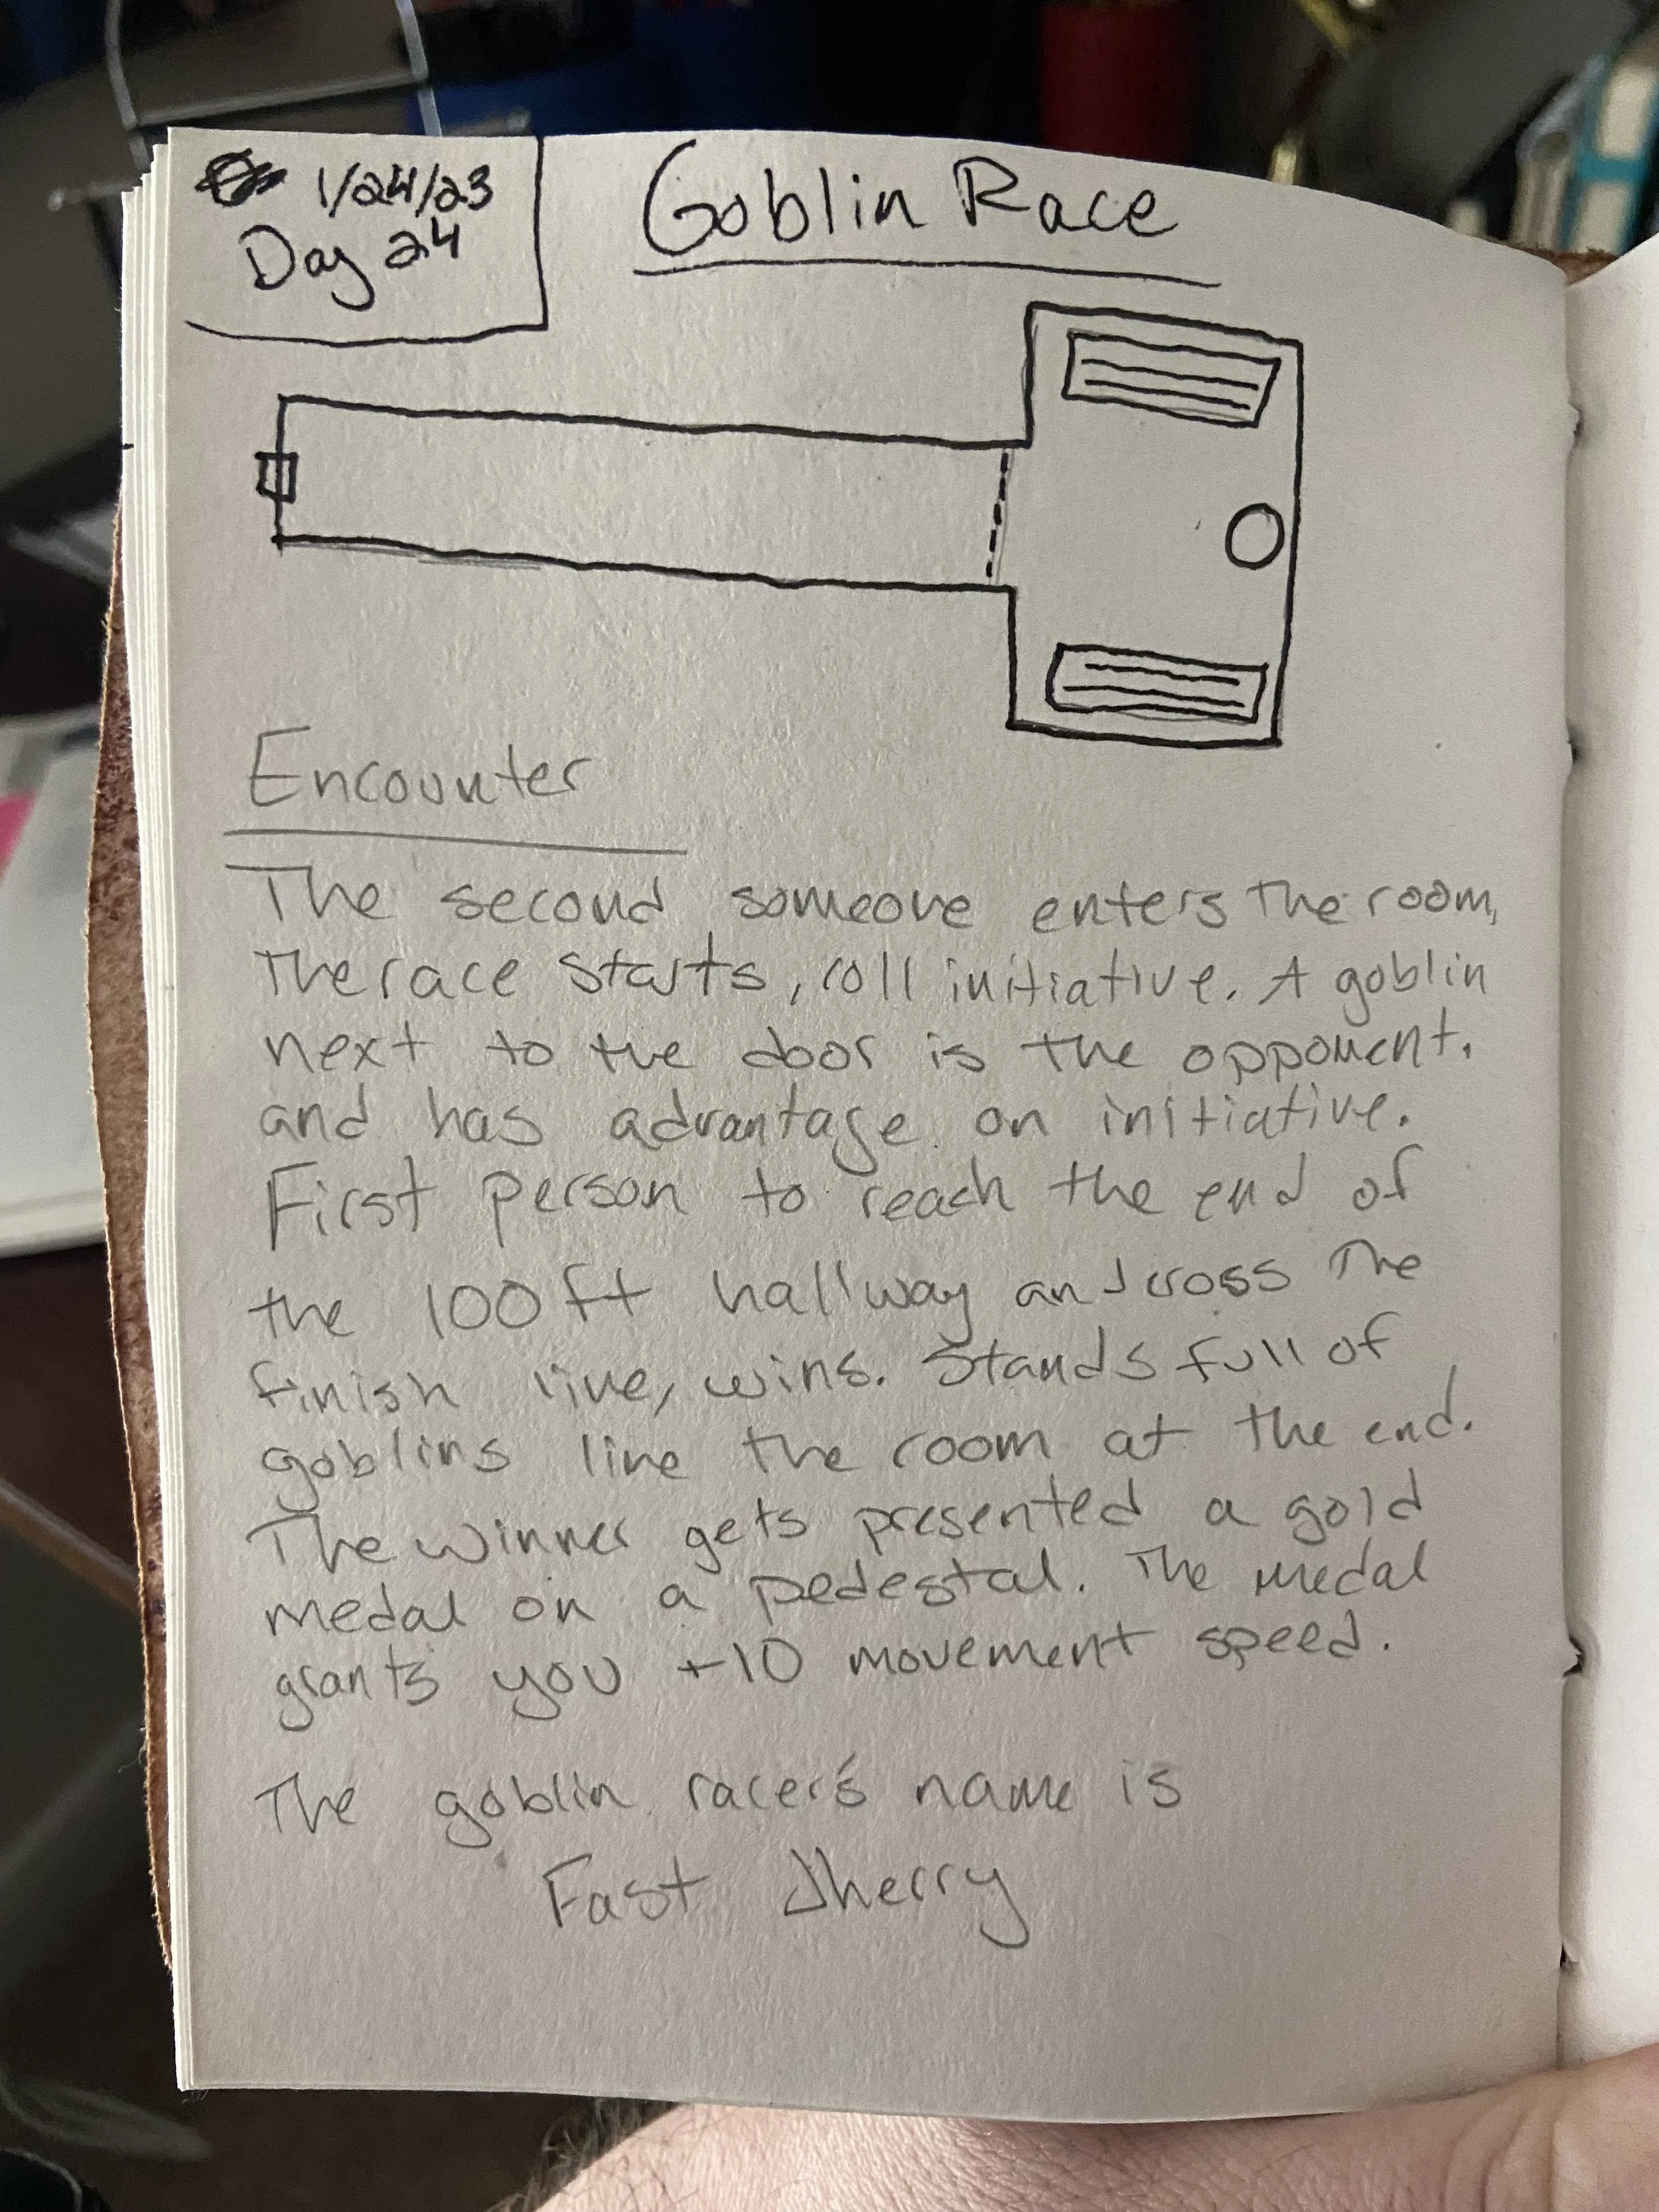 1/24/23
Day 24
Goblin Race
Encounter
The second someone enters the room,
The race starts, roll initiative. A goblin
next to the door is the opponent.
and has advantage on initiative.
First person to reach the end of
the 100ft hallway and cross The
finish line, wins. Stands full of
goblins line the room at the end.
The winner gets presented a gold
medal on a pedestal. The medal
grants you +10 movement speed.
The goblin racer's name is
Fast Jherry